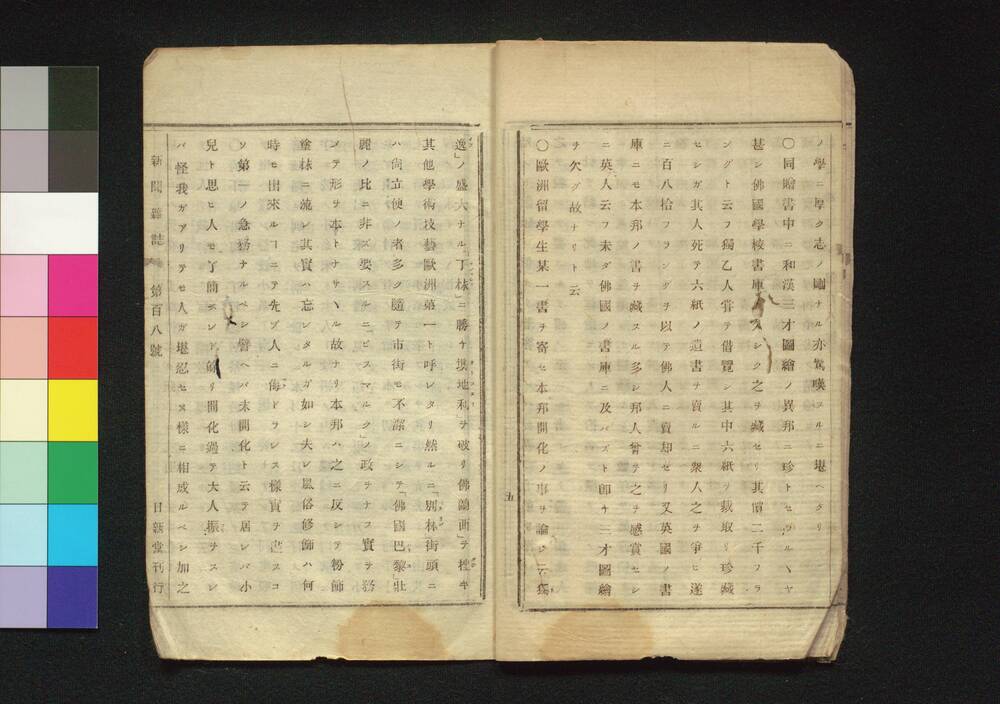 ノ學ニ厚ク志ノ剛ナル亦驚嘆スルニ堪ヘタリ
〇同贈書中ニ和漢三才圖繪ノ異邦ニ珍トセラルヽヤ
甚シ佛國學校書庫久シク之ヲ藏セリ其價二千フラ
ングト云フ獨乙人嘗テ借覽シ其中六紙ヲ裁取リ珍藏
セシガ其人死テ六紙ノ遺書ヲ賣ルニ衆人之ヲ爭ヒ遂
ニ百八拾フランクヲ以テ佛人ニ賣却セリ又英國ノ書
庫ニモ本邦ノ書ヲ藏スル多シ邦人曾テ之ヲ感賞セシ
ニ英人云フ未ダ佛國ノ書庫ニ及バズト即チ三才圖繪
ヲ欠グ故ナリト云
〇歐洲留學生某一書ヲ寄セ本邦開化ノ事ヲ論ジ云獨
五
逸」ノ盛大ナル「丁抹」ニ勝チ「墺地利」ヲ破リ「佛蘭西」ヲ挫キ
其他學術技藝歐洲第一ト呼レタリ然ルニ「別林」街頭ニ
ハ尚立便ノ者多ク隨テ市街モ不潔ニシテ「佛國巴黎」壯
麗ノ比ニ非ズ要スルニ「ビスマルク」ノ政ヲナス實ヲ務
メテ形ヲ本トナサヽル故ナリ本邦ハ之ニ反シテ粉飾
塗抹ニ流レ其實ハ忘レタルガ如シ夫レ風俗修飾ハ何
時モ出來ルヿニテ先ヅ人ニ侮ドラレヌ樣實ヲ盡スコ
ソ第一ノ急務ナルベシ譬ヘバ未開化ト云テ居レバ小
兒ト思ヒ人モ了簡シ開化過テ大人振ヲスレ
バ怪我ガアリテモ人ガ堪忍セヌ樣ニ相成ルベシ加之
新聞雜誌 第百八號 日新堂刊行